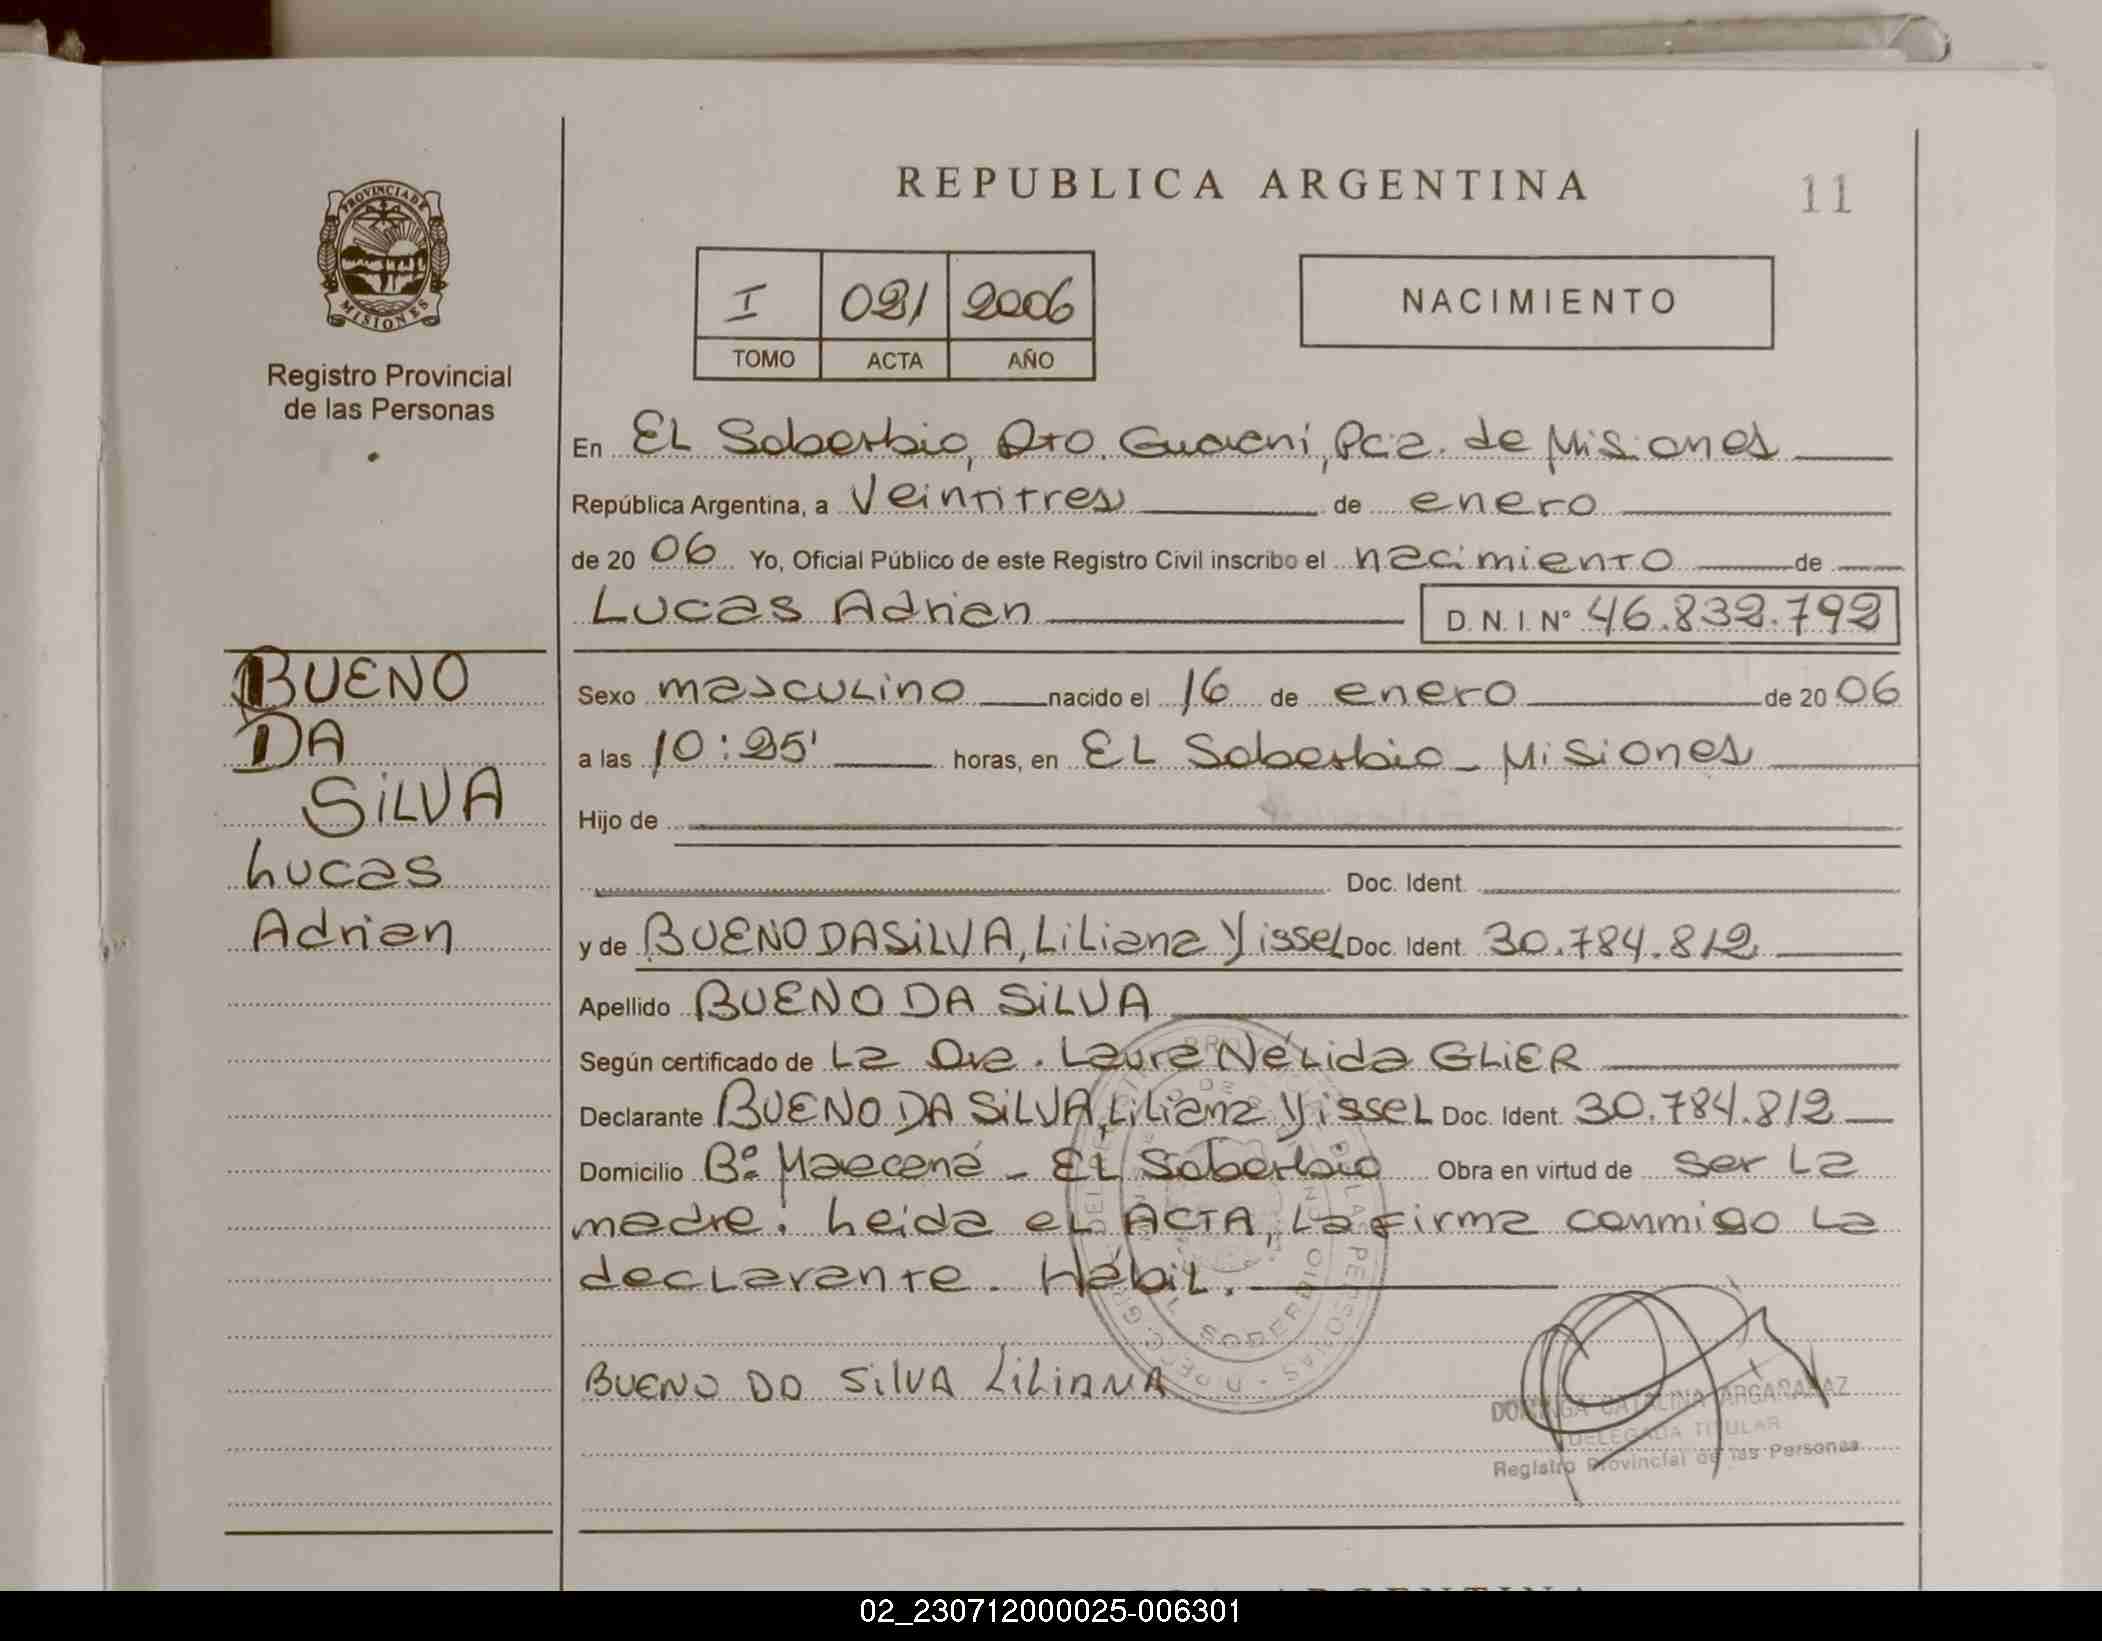 REPUBLICA ARGENTINA
11
PROVINCIA DE
MISIONES
Registro Provincial
de las Personas
I 021 2006
TOMO ACTA AÑO
NACIMIENTO
En EL Soberbio, Dto. Guarní, Pcia. de Misiones
República Argentina, a Veintitres de enero
de 2006 Yo, Oficial Público de este Registro Civil inscribo el nacimiento de
Lucas Adrian D.N.I. Nº 46.832.792
BUENO
DA
SiLVA
Lucas
Adrian
Sexo masculino nacido el 16 de enero de 2006
a las 10:25' horas, en EL Soberbio - Misiones
Hijo de
Doc. Ident.
y de BUENO DA SiLVA, Liliana Yissel Doc. Ident. 30.784.812
Apellido BUENO DA SiLVA
Según certificado de La Dra. Laura Nélida GLiER
Declarante BUENO DA SiLVA, Liliana Yissel Doc. Ident. 30.784.812
Domicilio Bº - EL Soberbio Obra en virtud de ser La
madre. Leida eL ACTA, La firma conmigo La
declarante. Hábil.
BUENO DA SiLVA LiLiANA
DOMINGA CATALINA ARGAÑARAZ
DELEGADA TITULAR
Registro Provincial de las Personas
02_230712000025-006301